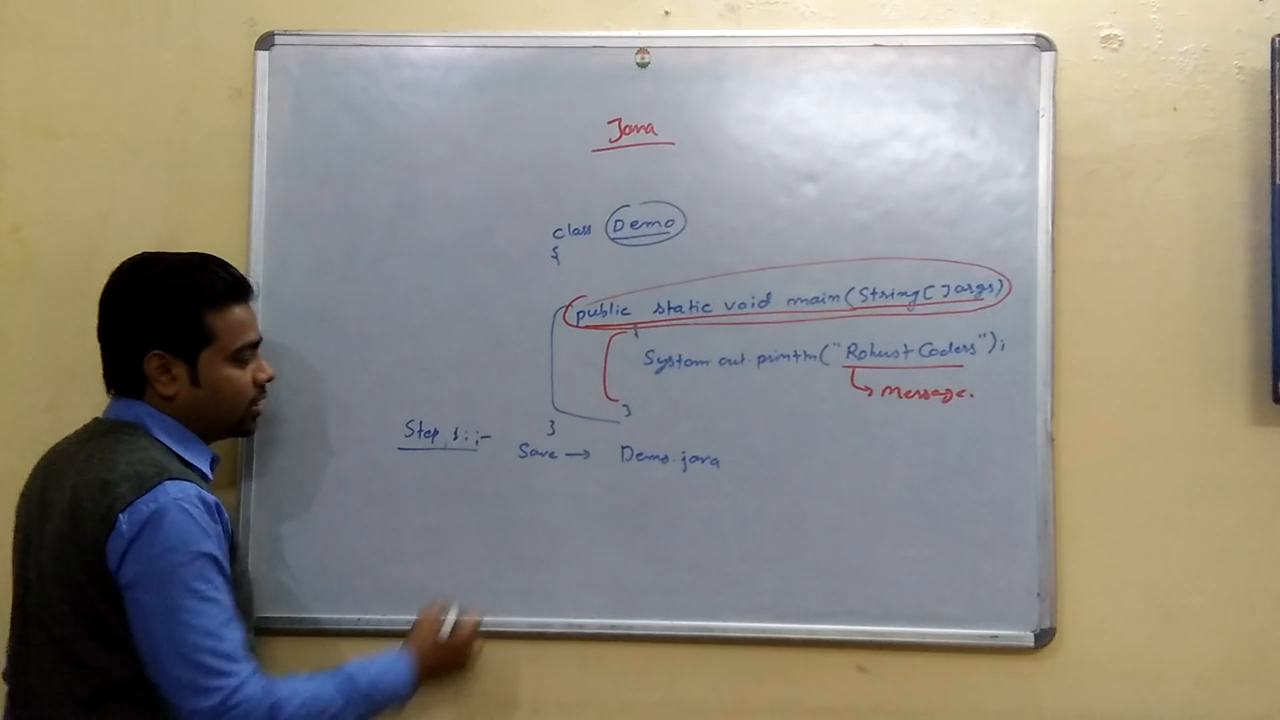 Java
class Demo
{
public static void main(String[]args)
{
System.out.println("Robust Coders");
→ Message.
}
}
Step 1::-
Save → Demo.java